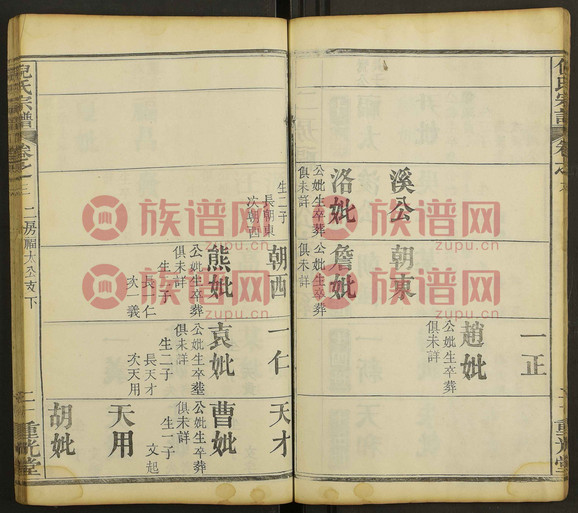 倪氏宗譜
卷之
一正
趙妣
公妣生卒葬
俱未詳
溪公
洛妣
公妣生卒葬
俱未詳
生二子
長朝東
次朝西
朝東
詹妣
公妣生卒葬
俱未詳
朝西
熊妣
公妣生卒葬
俱未詳
生二子
長一仁
次一義
一仁
袁妣
公妣生卒葬
俱未詳
生二子
長天才
次天用
天才
曹妣
公妣生卒葬
俱未詳
生一子
文起
天用
胡妣
重光堂
倪氏宗譜
卷之三
二房福太公支下
二十
重光堂
族谱网
zupu.cn
族谱网
zupu.cn
族谱网
zupu.cn
族谱网
zupu.cn